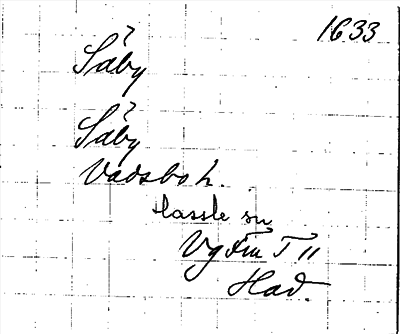 1633
Säby
Säby
Vadsbo h.
Hassle sn
Vg Fm T II
Had.